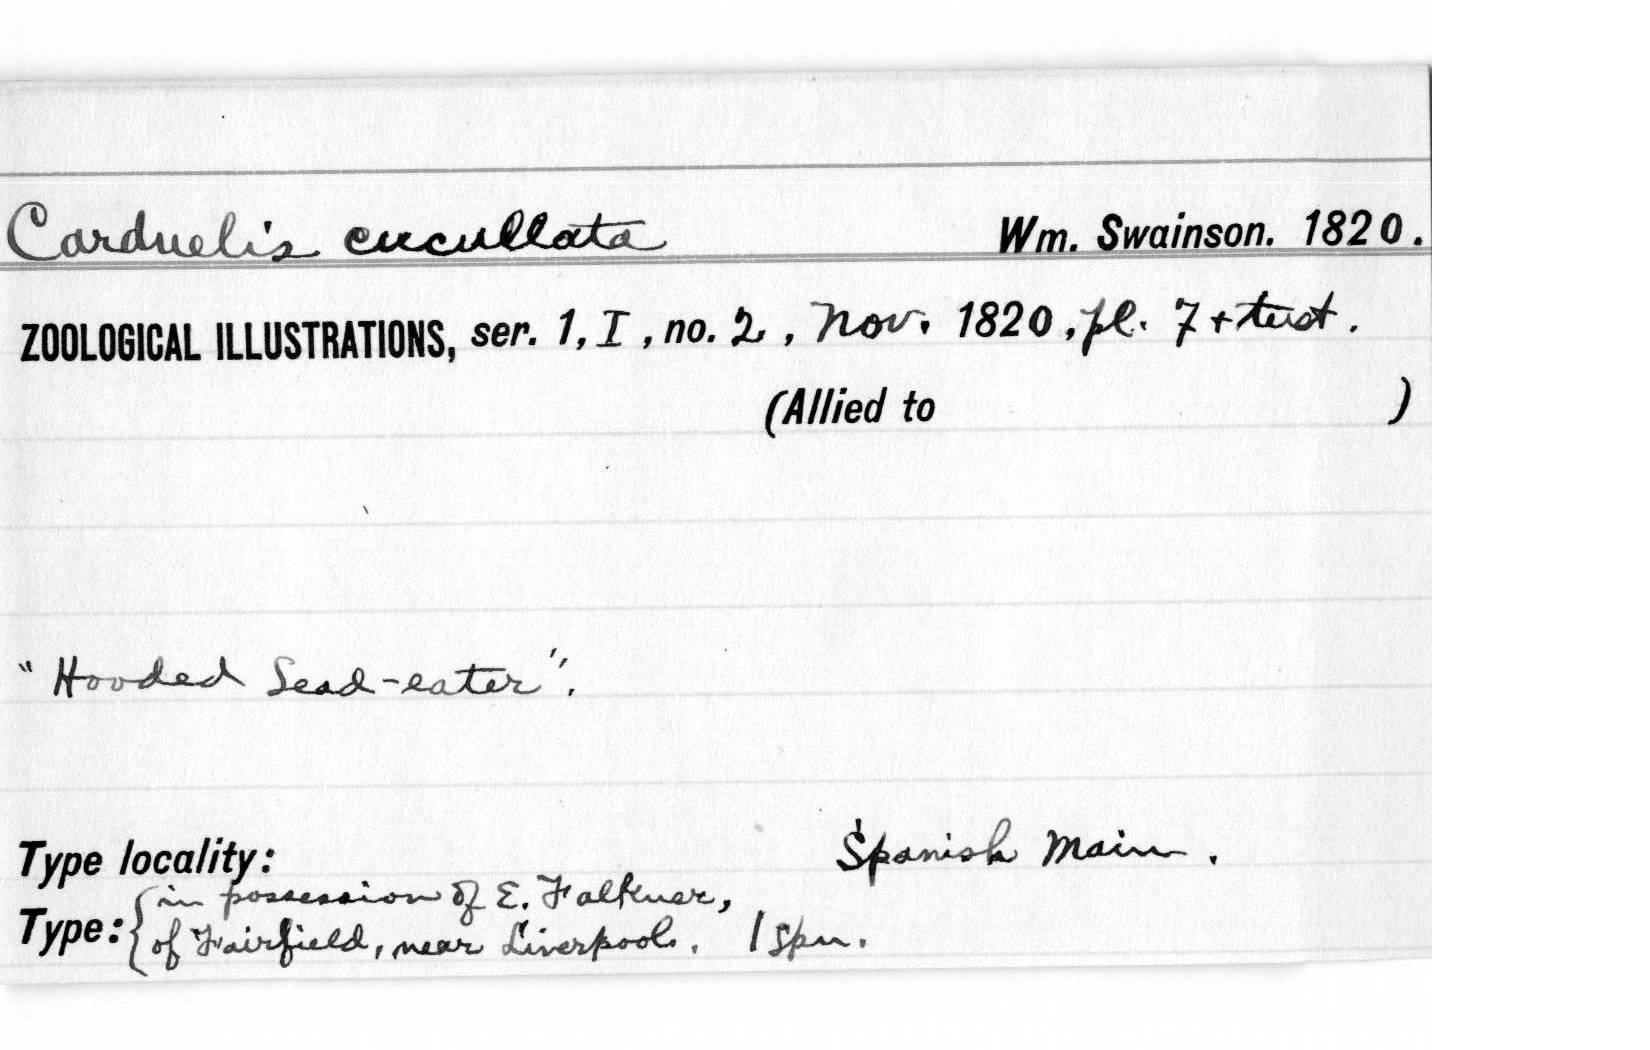 Carduelis cucullata Wm. Swainson. 1820.
ZOOLOGICAL ILLUSTRATIONS, ser. 1, I, no. 2, Nov. 1820, pl. 7 + text.
(Allied to )
"Hooded Seed-eater".
Type locality: Spanish Main.
Type: { in possession of E. Falkner,
of Fairfield, near Liverpool. 1 spn.